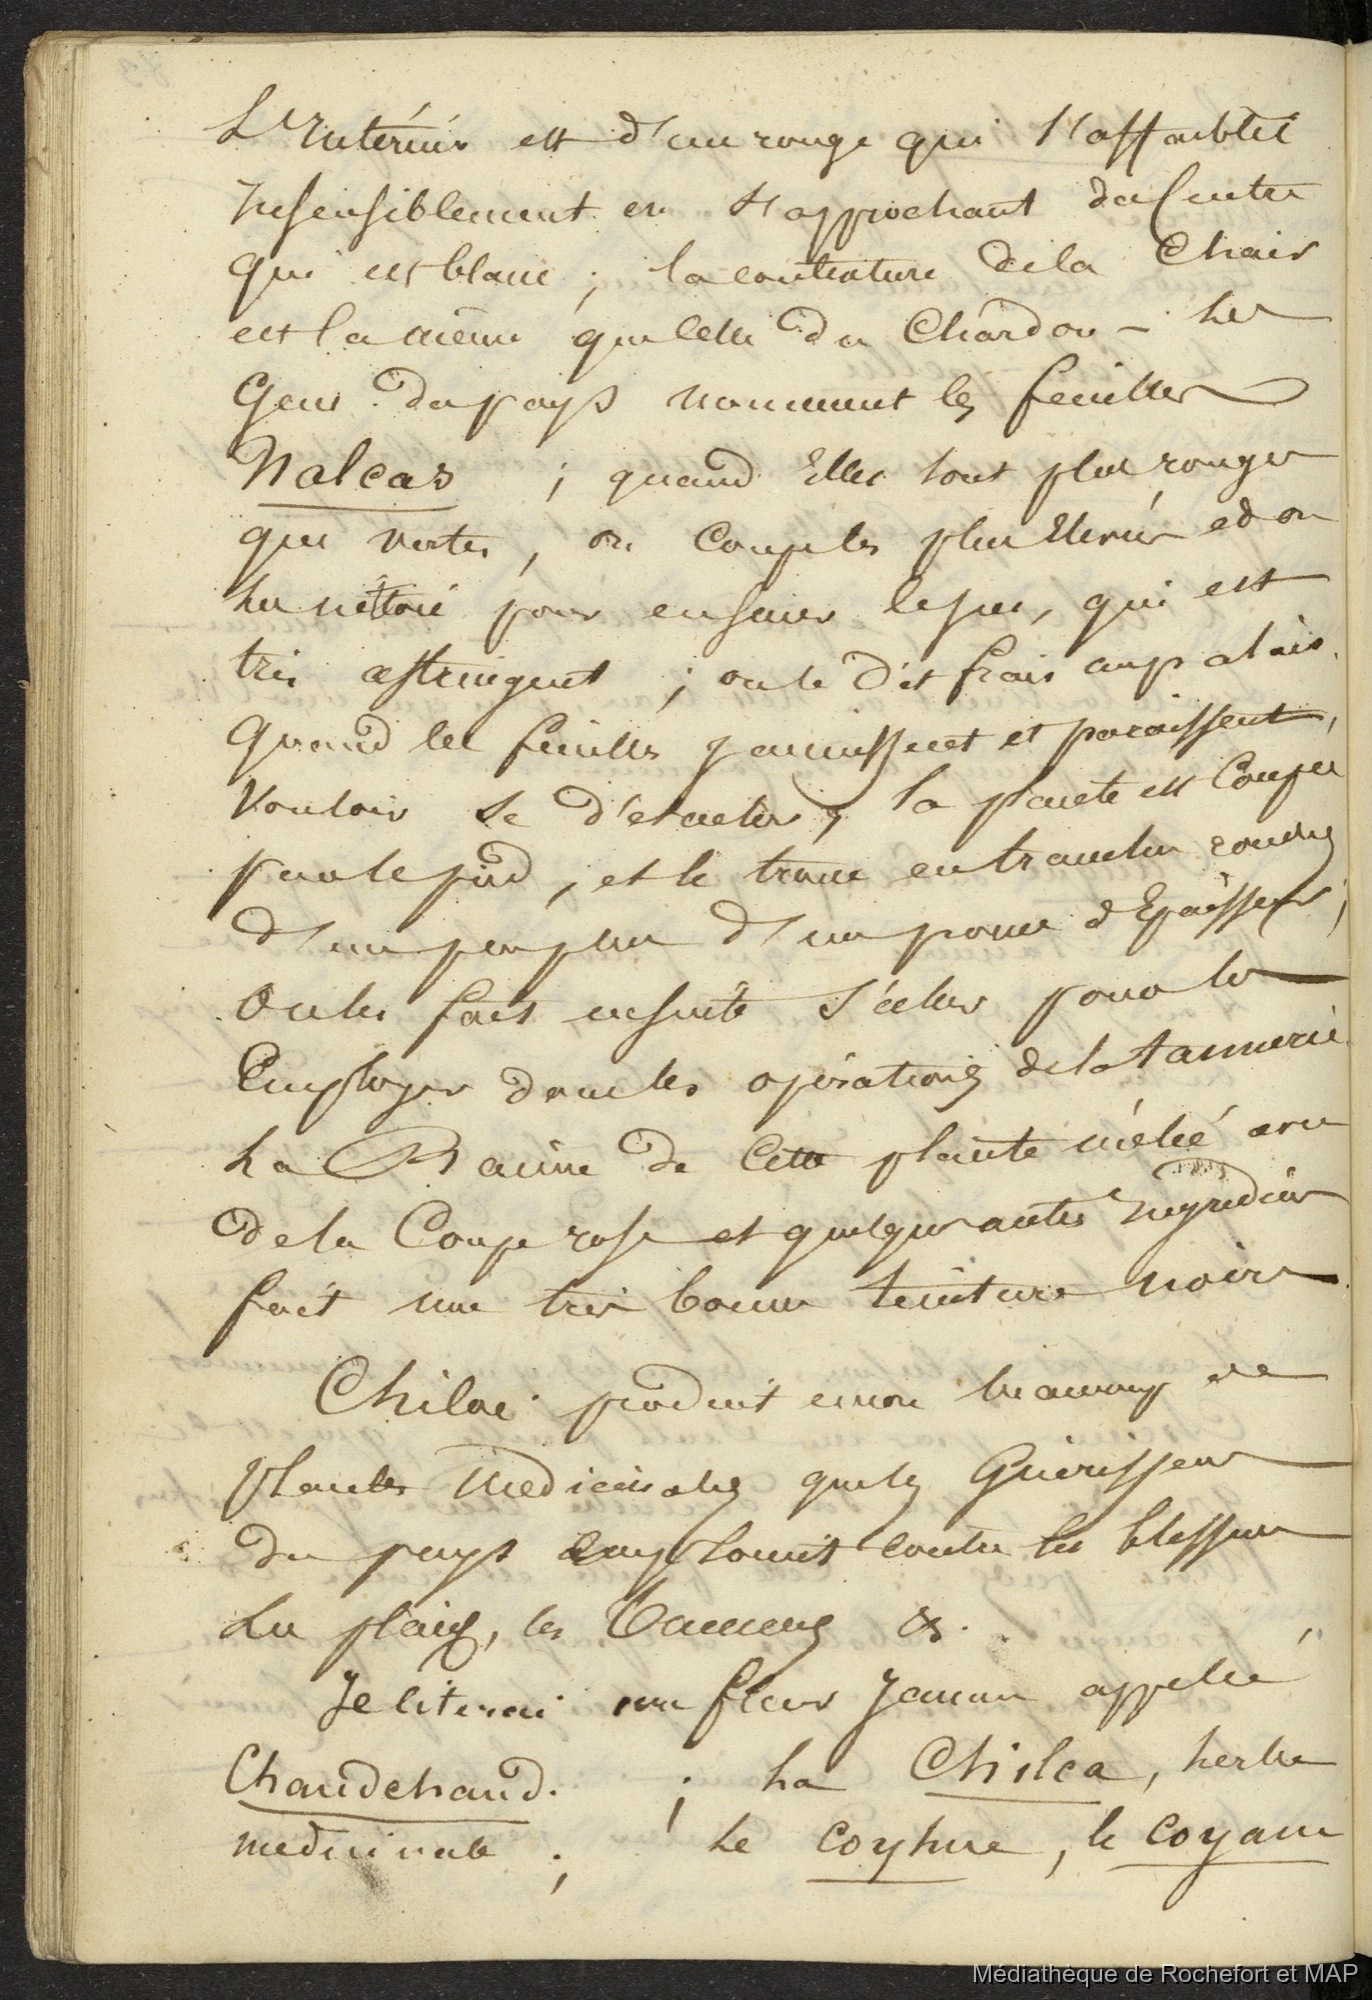 L'Intérieur est d'un rouge qui s'affoiblit
Insensiblement en s'approchant du Centre
qui est blanc ; la contexture de la Chair
est la même que Celle du Chardon — Les
Gens du pays nomment les feuilles
Nalcas ; quand Elles sont plus rouges
que vertes, on Coupe les plus Elevées et on
Les nettoie pour en sucer le suc, qui est
très astringent ; on le dit frais au palais.
Quand les feuilles jaunissent et paraissent,
Vouloir se détacher, la plante est Coupée
par le pied, et le tronc en tranches rondes
d'un peu plus d'un pouce d'Epaisseur ;
On les fait ensuite sécher pour les
Employer dans les opérations de la tannerie.
La Racine de Cette plante mêlée avec
de la Couperose et quelques autres Ingrediens
fait une très bonne teinture noire
Chiloé produit encore beaucoup de
plantes médicinales que les Guérisseurs
du pays employent contre les blessures
Les plaies, les &.
Je Citerai une fleur Jaune appelée
Chaudchaud. ; La Chilca, herbe
médicinale ; Le Coyhue, le Coyam
Médiathèque de Rochefort et MAP